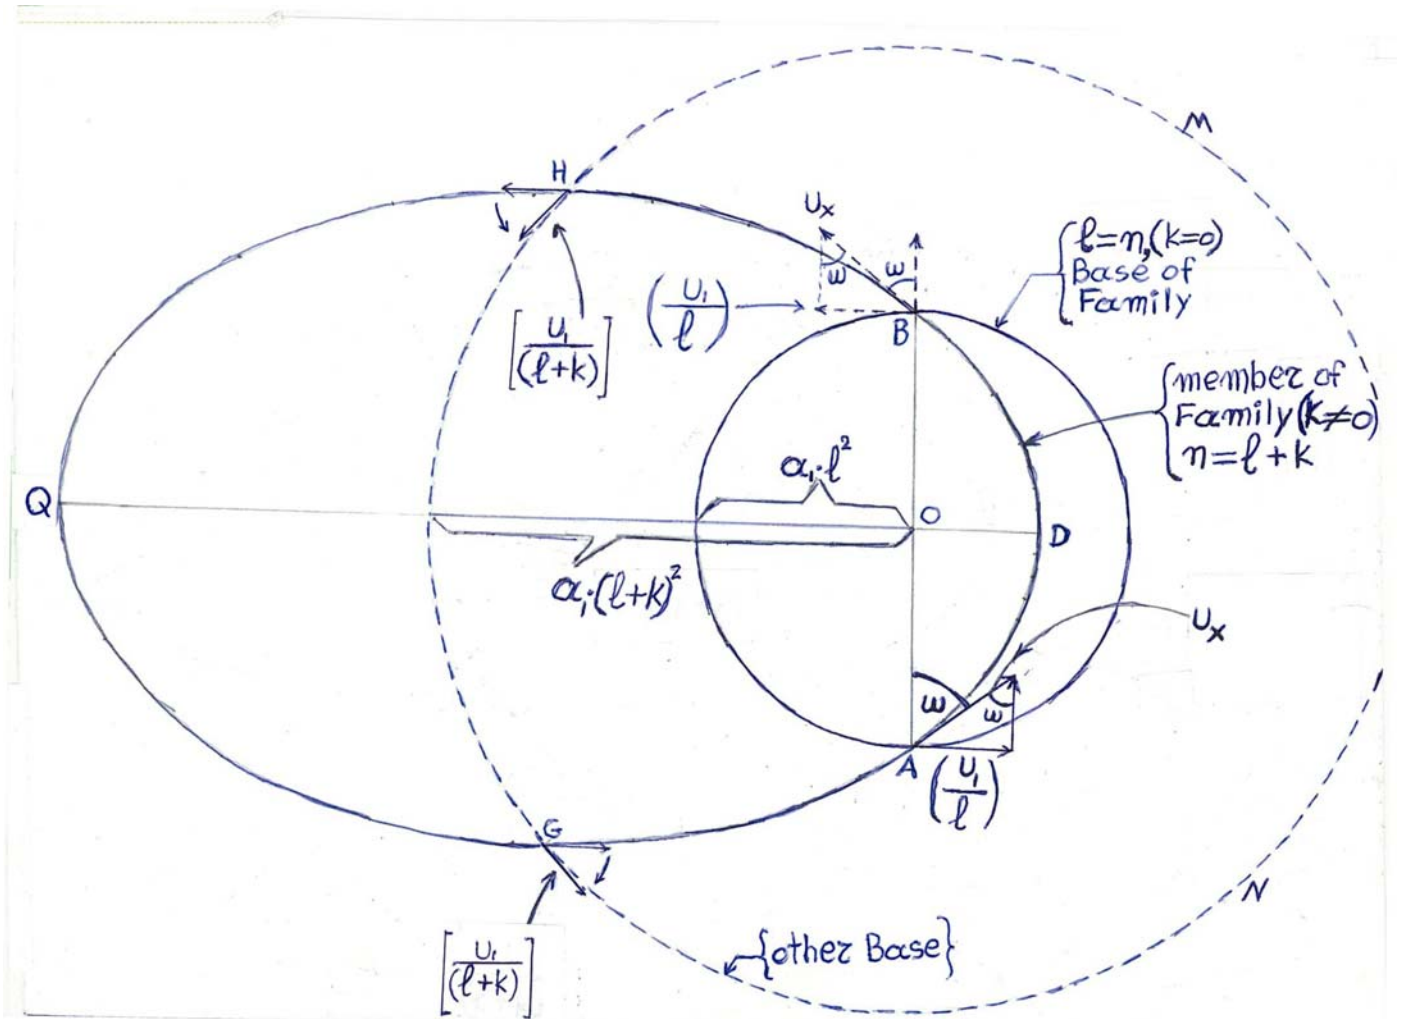 M
H
Uₓ
ω
ω
{ℓ=n,(k=0)
Base of
Family
(U₁/ℓ)
B
[U₁/(ℓ+k)]
{member of
Family(k≠0)
n=ℓ+k
α₁·ℓ²
Q
O
D
α₁·(ℓ+k)²
Uₓ
ω
ω
A
(U₁/ℓ)
G
N
[U₁/(ℓ+k)]
{other Base}